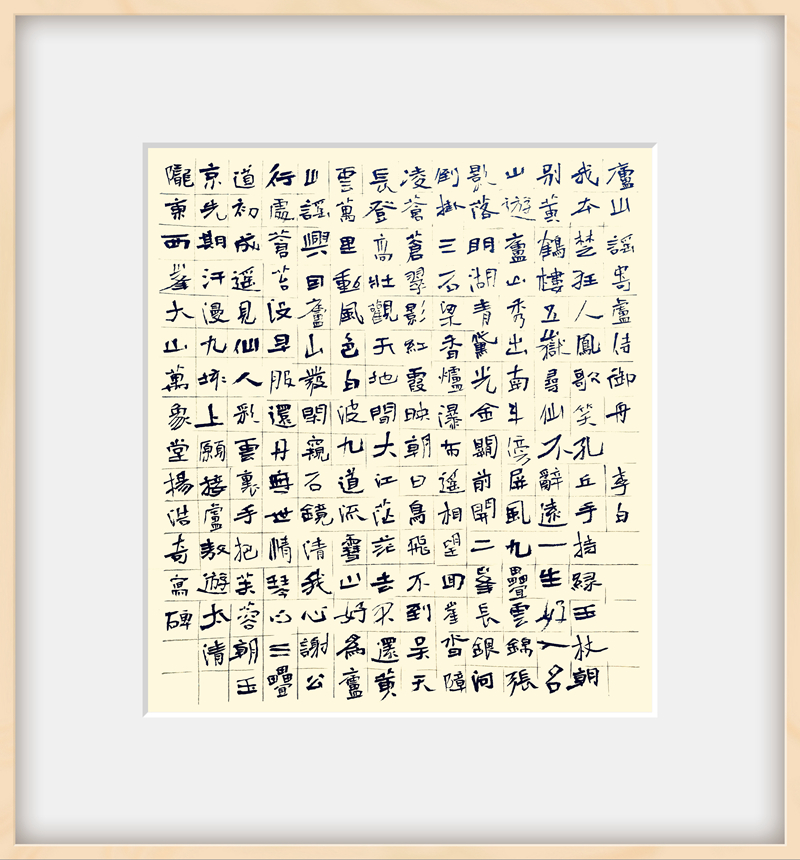 廬山謠寄盧侍御舟 李白
我本楚狂人鳳歌笑孔丘手持緑玉杖朝
别黃鶴樓五嶽尋仙不辭遠一生好入名
山遊廬山秀出南斗傍屏風九疊雲錦張
影落明湖青黛光金闕前開二峯長銀河
倒掛三石梁香爐瀑布遥相望回崖沓障
凌蒼蒼翠影紅霞映朝日鳥飛不到吳天
長登高壯觀天地間大江茫茫去不還黃
雲萬里動風色白波九道流雪山好為廬
山謠興因廬山發閑窺石鏡清我心謝公
行處蒼苔沒早服還丹無世情琴心三疊
道初成遥見仙人彩雲裏手把芙蓉朝玉
京先期汗漫九垓上願接盧敖遊太清
隴東西峯大山萬象堂揚浩奇寫碑